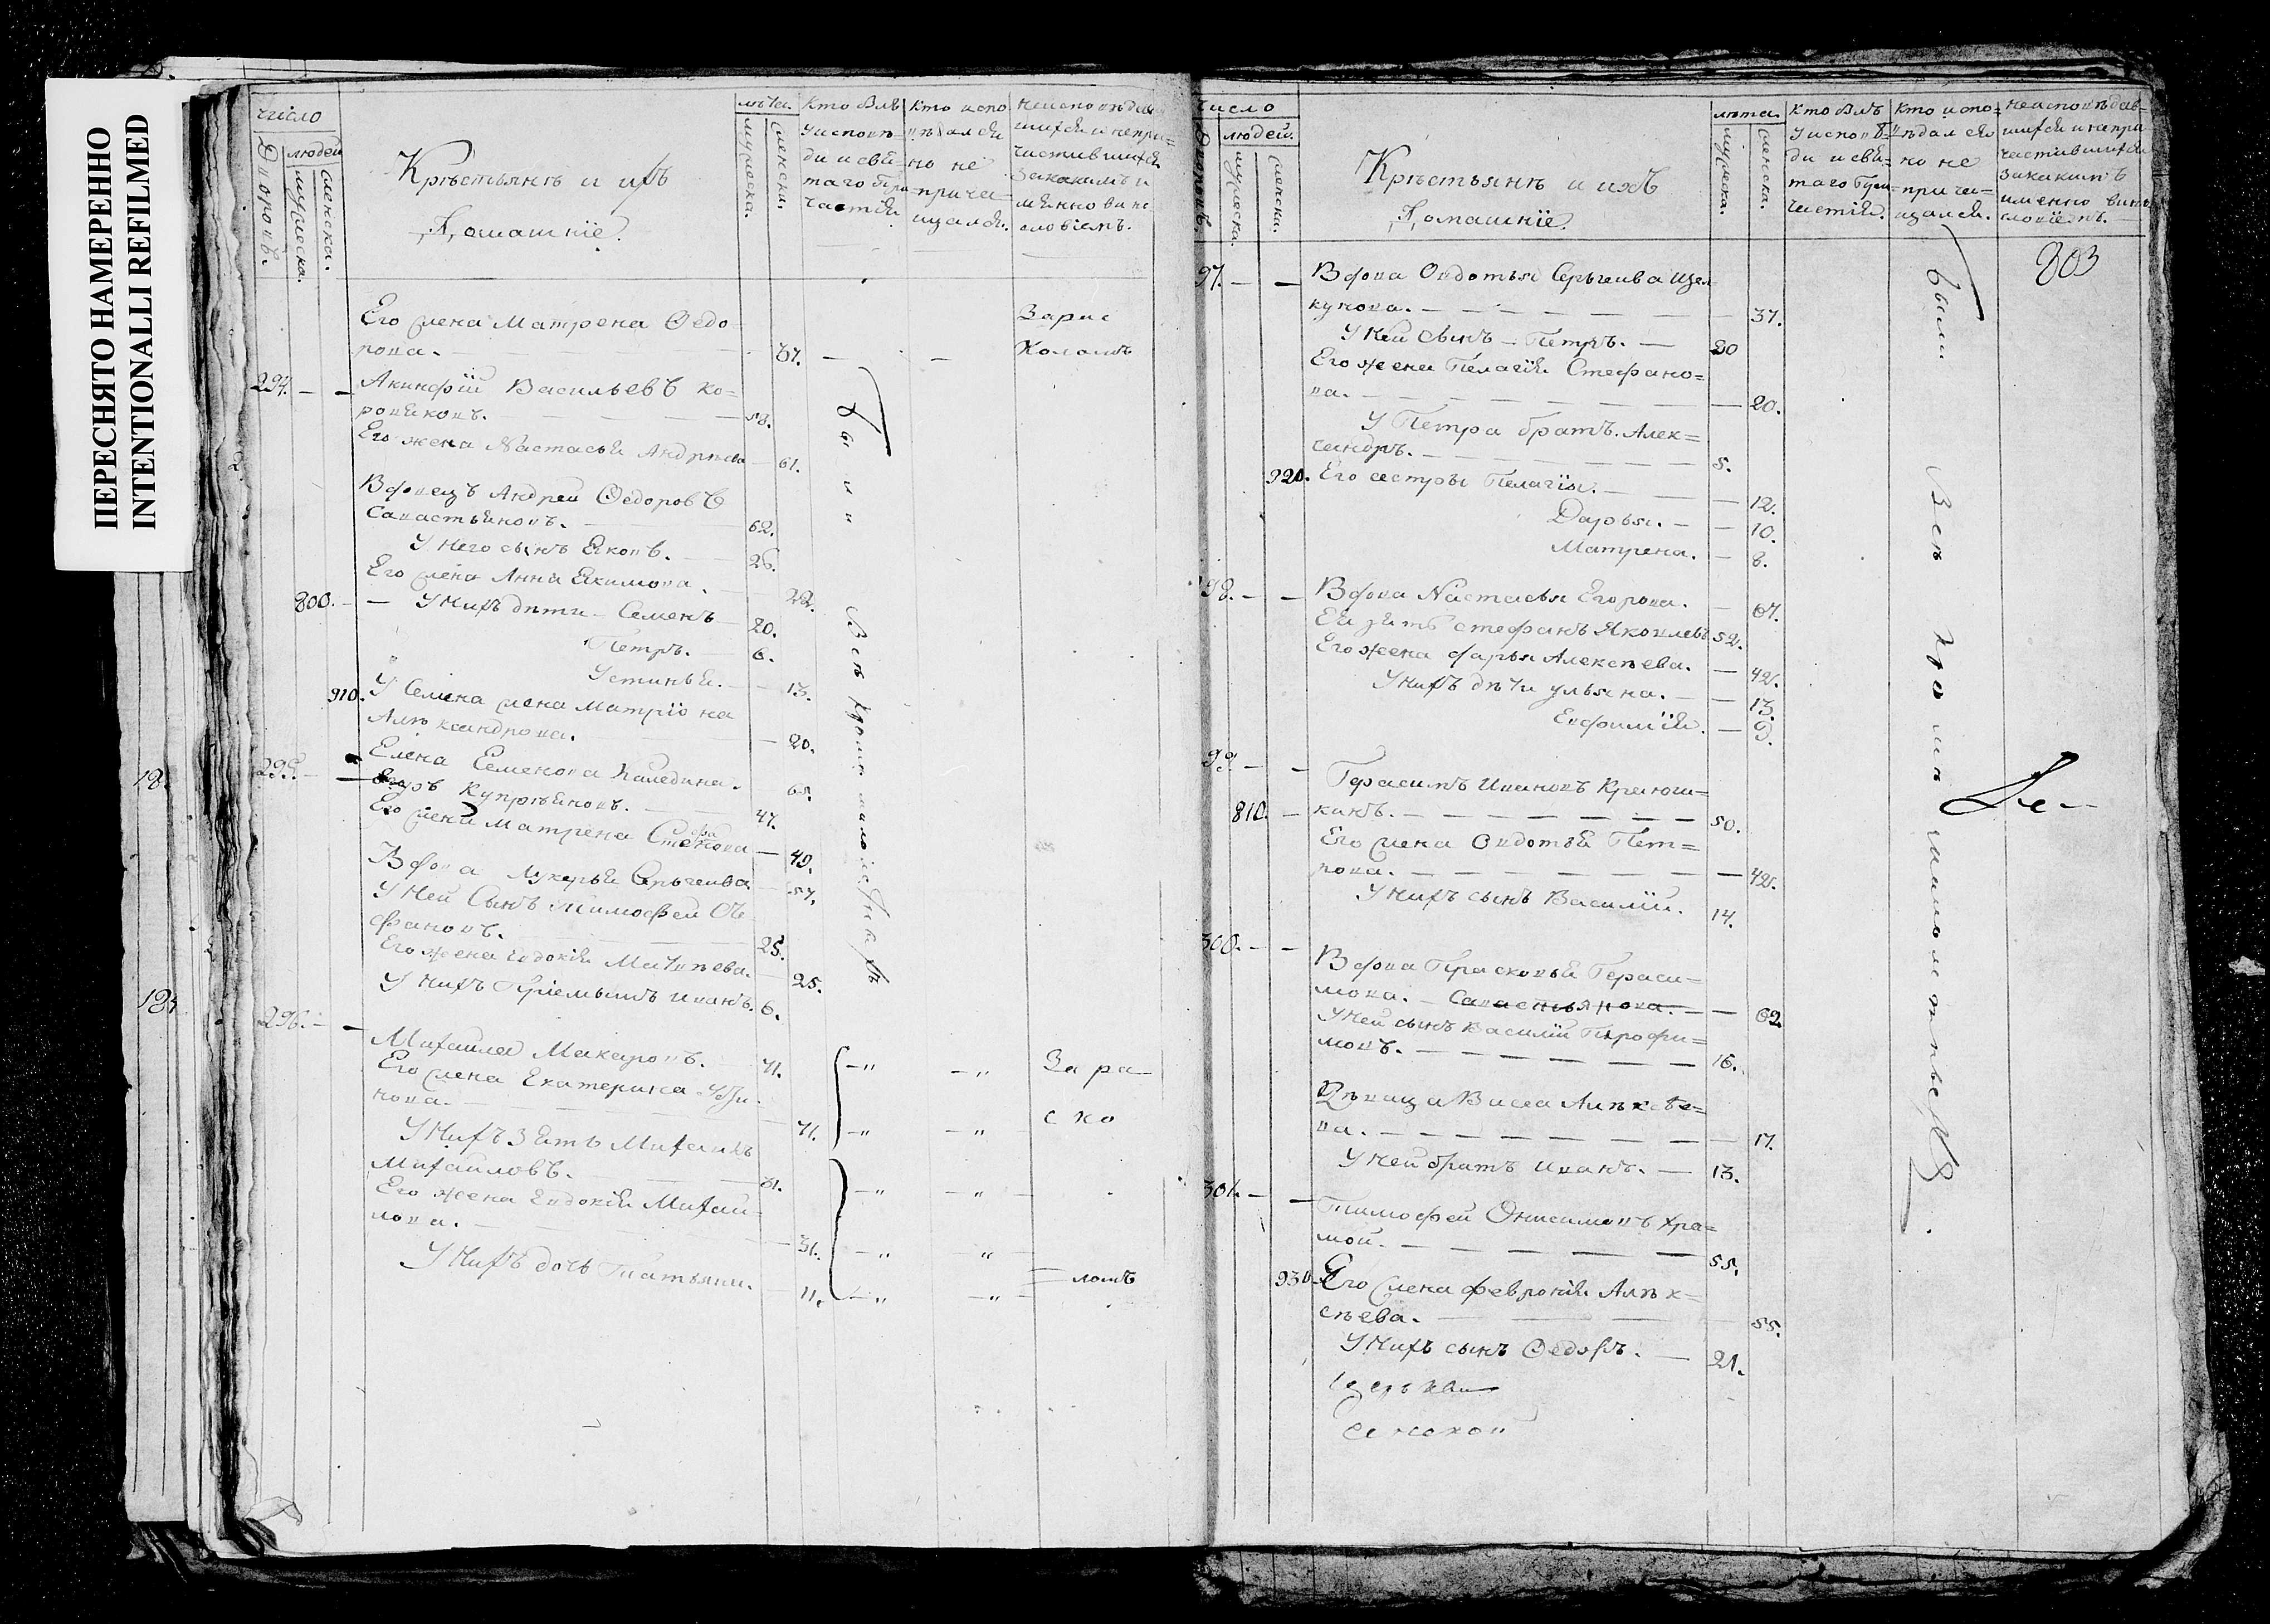 ПЕРЕСНЯТО НАМЕРЕННО
INTENTIONALLI REFILMED
число
людей
Дворовъ.
мужеска.
женска.
Крѣстьянѣ и ихъ
Домашнїе.
лѣта.
мужеска.
женска.
Кто былъ
Уисповѣ-
ди и свя-
таго При-
частїя
Кто испо
вѣдался
но не
прича-
щался.
Неисповѣдав
шихся и непри-
частившихся
Закакимъ и
мѣнно вине
словїемъ.
Его жена Матрена Ѳедо
рова. — 67. — —
Зарас
Коломъ
294. — — Акинфїй Васильевъ Ко-
ровяковъ. — 58.
Его жена Настасья Андрѣева — 61.
Вдовецъ Андрей Ѳедоровъ
Савастьяновъ. — 62.
У Него сынъ Яковъ. — 26.
Его жена Анна Якимова. — 22.
800. — — У Нихъ дѣти — Семенъ 20.
Петръ. — 6.
Устинья. — 13.
910. У Семена жена Матрїона
Алѣксандрова. — 20.
были
Всѣ кромѣ малолѣтнихъ
18.
295. — — Елена Семенова 65.
Купрѣяновъ. — 47.
Его жена Матрена Стефанова — 49.
Вдова Лукерья Серьгеива — 57.
У Ней Сынъ Тимофей Сте
фановъ. — 25.
Его жена Евдокїя Матвѣева. — 25.
У Нихъ Прїемышъ Иванъ. 6.
296. — — Михайла Макаровъ. — 71.
Его жена Екатерина
нова. — 71.
У Нихъ Зять Михаилъ
Михайловъ. — 31.
Его жена Евдокїя Михай-
лова. — 31.
У Нихъ дочь Татьяна. 11.
За ра—
ско
— ломъ
число
людей.
Дворовъ
мужеска.
женска.
Крѣстьянѣ и ихъ
Домашнїе.
лѣта.
мужеска.
женска.
Кто былъ
Уисповѣ-
ди и свя-
таго При-
частїя.
Кто испо-
вѣдался
но не
прича-
щался.
Неисповѣдав-
шихся и непри
частившихся
Закакимъ
именно вино
словїемъ.
803
97. — — Вдова Овдотья Серьгеива Щел
кунова. — 37.
У Ней сынъ — Петръ. — 20
Его жена Пелагїя Стефано=
ва. — 20.
У Петра братъ. Алек=
сандръ. — 5.
920. Его сестры Пелагїя. — 12.
Дарья. — 10.
Матрена. — 8.
98. — — Вдова Настасья Егорова. — 67.
Ея зять Стефанъ Яковлевъ 52.
Его жена Дарья Алексѣева. — 42.
У Нихъ дѣти Ульяна. — 13.
Евфимїя. — 9.
99. — — Герасимъ Ивановъ Крагош=
810. — кинъ. — 50.
Его жена Овдотья Пет=
рова. — 42.
У Нихъ сынъ Василїй. 14.
300. — — Вдова Прасковья Гераси=
мова. — Савастьянова. — 62
У Ней сынъ Василїй Трофи=
мовъ. — 16.
Дѣвица Васса Алѣксѣе=
ва. — 17.
У Ней братъ Иванъ. — 13.
301. — — Тимофей Онисимовъ Хра=
мой. — 55.
930. Его жена Февронїя Алѣк=
сѣева. — 55.
У Нихъ сынъ Ѳедоръ. — 21.
были
Всѣ кромѣ малолѣтныхъ.